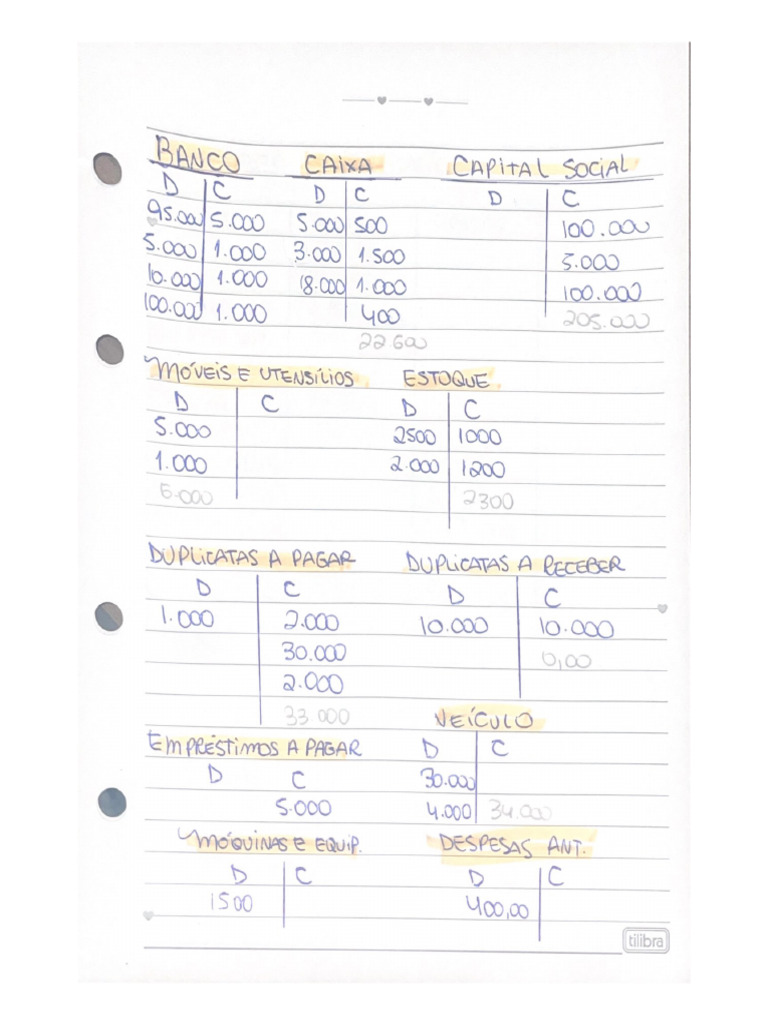 BANCO CAIXA CAPITAL SOCIAL
D C D C D C
95.000 5.000 5.000 500 100.000
5.000 1.000 3.000 1.500 5.000
10.000 1.000 18.000 1.000 100.000
100.000 1.000 400 205.000
22 600
MÓVEIS E UTENSÍLIOS ESTOQUE
D C D C
5.000 2500 1000
1.000 2.000 1200
6.000 2300
DUPLICATAS A PAGAR DUPLICATAS A RECEBER
D C D C
1.000 2.000 10.000 10.000
30.000 0,00
2.000
33.000 VEÍCULO
EMPRÉSTIMOS A PAGAR D C
D C 30.000
5.000 4.000 34.000
MÓQUINAS E EQUIP. DESPESAS ANT.
D C D C
1500 400,00
tilibra